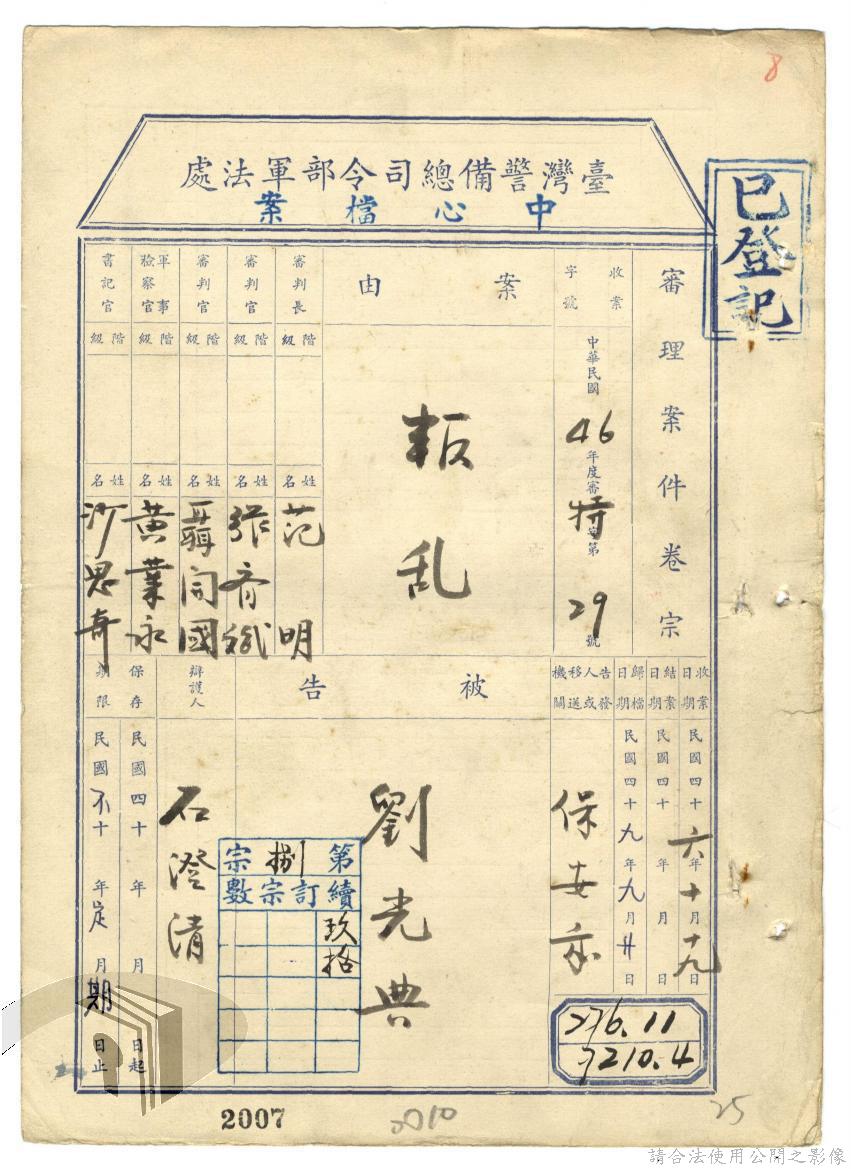 8
臺灣警備總司令部軍法處
中心檔案
已登記
審理案件卷宗
收案字號
中華民國46年度審特字第29號
案由
叛乱
審判長
階級
姓名
范明
審判官
階級
姓名
張齊斌
審判官
階級
姓名
聶開國
軍事檢察官
階級
姓名
黃業永
書記官
階級
姓名
沙思奇
收案日期
民國四十六年十月十九日
結案日期
民國四十年月日
歸檔日期
民國四十九年九月廿日
告發人或移送機關
保安處
被告
劉光典
辯護人
石澄清
保存期限
民國四十年月日起
民國不十年定月期日止
第捌宗
續訂宗數
玖
拾
276.11
7210.4
2007
2010
25
請合法使用公開之影像